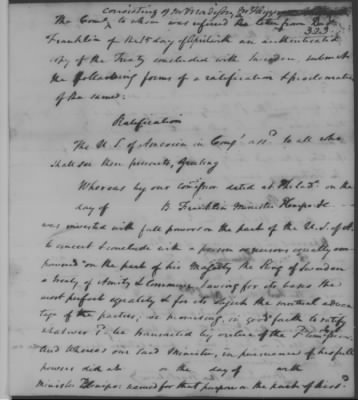 consisting of Mr Madison, Mr Higginson
323
The Comee to whom was referred the letter from Doctr
Franklin of the 15 day of April with an authenticated
copy of the Treaty concluded with Sweden, submit
the following forms of a ratification & proclamation
of the same:
Ratification
The U. S. of America in Congs assd to all who
shall see these presents, Greeting
Whereas by our comission dated at Philada on the
day of B Franklin Minister Plenipo &c
was invested with full powers on the part of the U. S. of A.
to concert & conclude with a person or persons equally em
powered on the part of his Majesty the King of Sweden
a Treaty of Amity & Commerce, having for its basis the
most perfect equality & for its object the mutual advan
tage of the parties, we promising in good faith to ratify
whatever sd be transacted by virtue of the sd comission.
And whereas our said Minister, in pursuance of his full
powers did at on the day of with
minister Plenipo: named for that purpose on the part of his sd